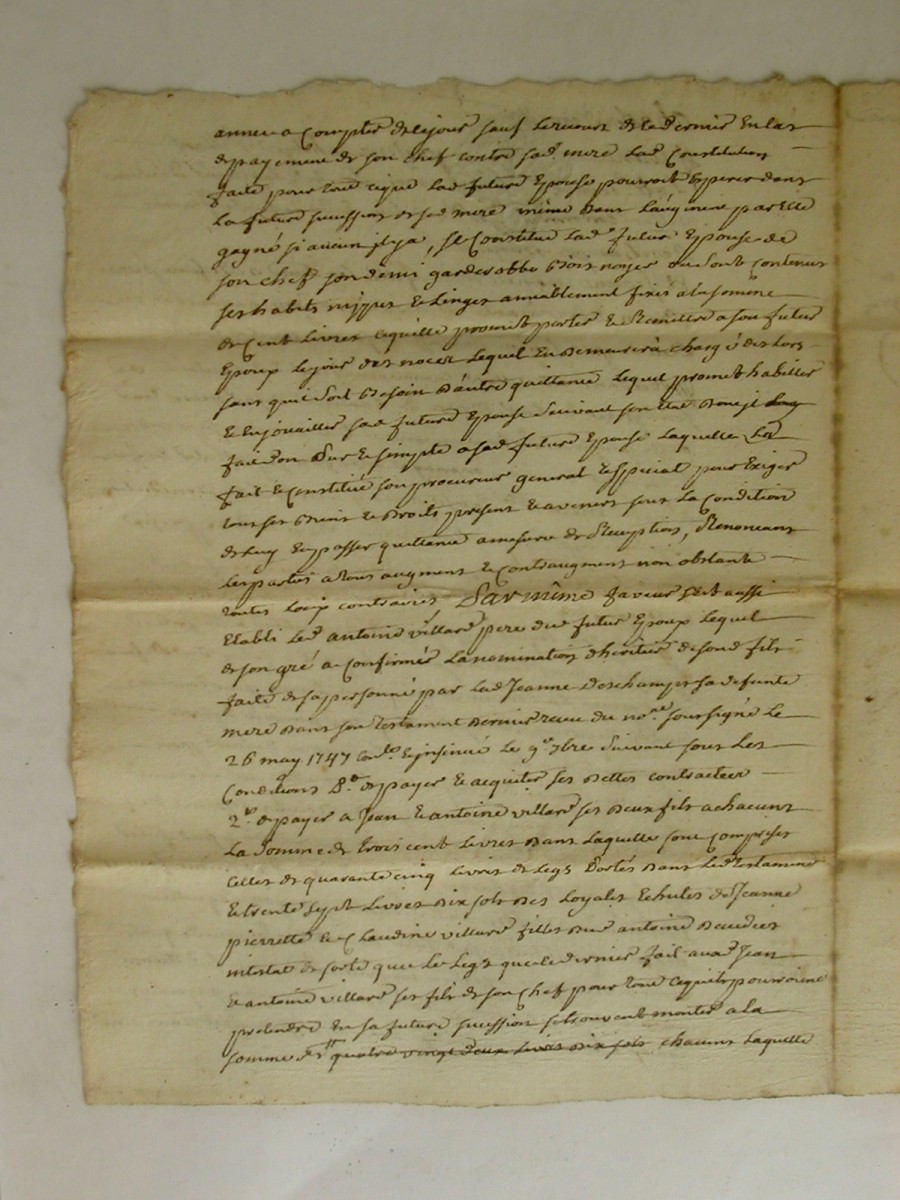 annee a Compter de ce jour sauf Le recours de ce dernier En Cas
de payement de son chef contre sad. mere Lad. Constitution
faite pour tout ce que Lad. future Epouse pourroit Esperer dans
La future succession de sad. mere même dans L'augment par Elle
gagné si aucun il y a, se Constitue Lad. future Epouse de
son chef son demi garderobbe Bois noyer ou sont Contenus
ses habits nippes & Linges amiablement fixés a la somme
de Cent Livres ce qu'elle promet porter & Remettre a son futur
Epoux le jour des noces Lequel En Demeurera chargé dès Lors
sans qu'il soit Besoin D'autre quittance Lequel promet habiller
& Enjouailler sad. future Epouse Suivant son Etat Dont il Luy
fait Don Pur & simple a sad. future Epouse Laquelle La
fait & Constitué son procureur general & special pour Exiger
tous ses Biens & Droits present & avenirs sous La Condition
de Luy En passer quittance a mesure de Reception, Renoncant
Les parties a tous augment & Contraugment non obstant
toutes Loix contraires, Par même faveur s'est aussi
Etabli Led. antoine villard pere dud. futur Epoux Lequel
de son gré a Confirmé La nomination d'heritier de sond. fils
faite de sa personne par Lad. Jeanne Deschamps sa defunte
mere Dans son testament Dernier receu du no.re soussigné Le
26 may 1747 Con.lé & insinué Le 9.e 7bre Suivant sous Les
Conditions 1.o de payer & acquiter ses Dettes contractées
2.o de payer a Jean & antoine villard ses Deux fils a chacuns
La somme de trois cent Livres Dans Laquelle sont comprises
Celles de quarante cinq Livres de Legs Portés Dans Led. testament
& trente sept Livres Dix sols Des Loyales Echutes de Jeanne
pierrette & Claudine villard filles Dud. antoine Decedées
intestat de sorte que Le Legs que ce dernier fait auxd. Jean
& antoine villard ses fils de son Chef pour tout ce qu'ils pourroient
pretendre En sa future succession se trouvent monter a la
somme de quatre vingt deux Livres Dix sols chacuns Laquelle